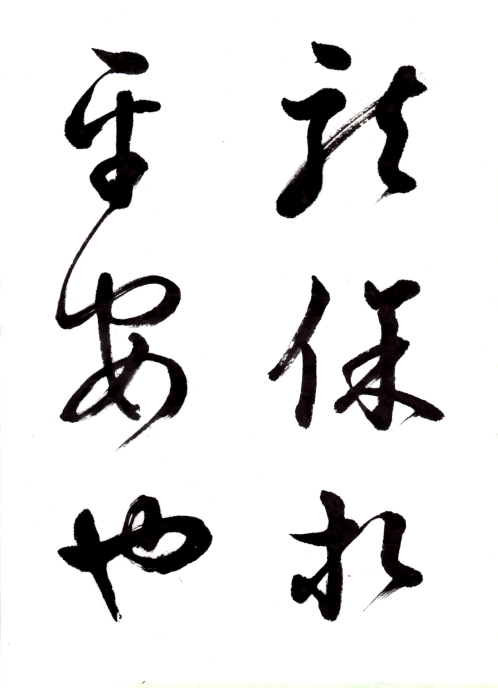 能保於
平安也